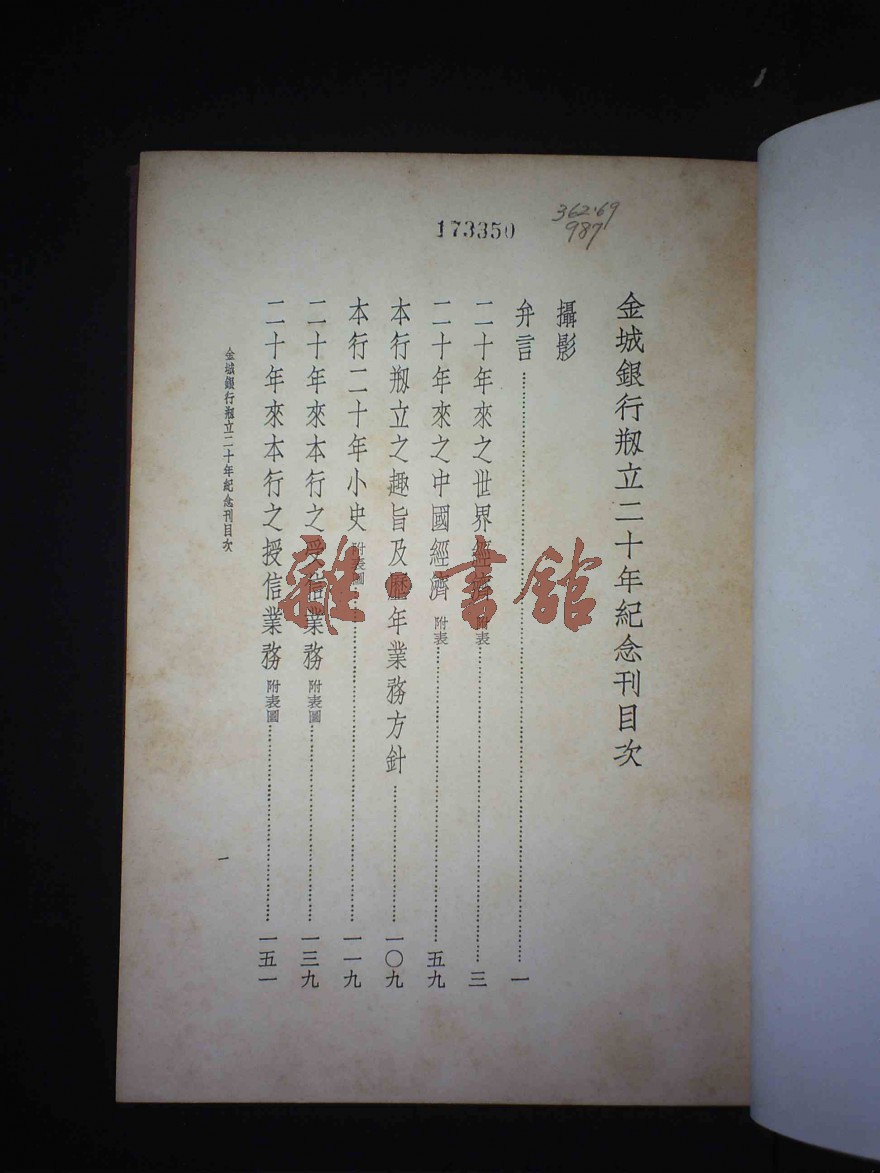 173350
362.69
987
金城銀行剏立二十年紀念刊目次
攝影
弁言……一
二十年來之世界經濟 附表……三
二十年來之中國經濟 附表……五九
本行剏立之趣旨及歷年業務方針……一〇九
本行二十年小史 附表圖……一一九
二十年來本行之受信業務 附表圖……一三九
二十年來本行之授信業務 附表圖……一五一
金城銀行剏立二十年紀念刊目次
一
雜·書館